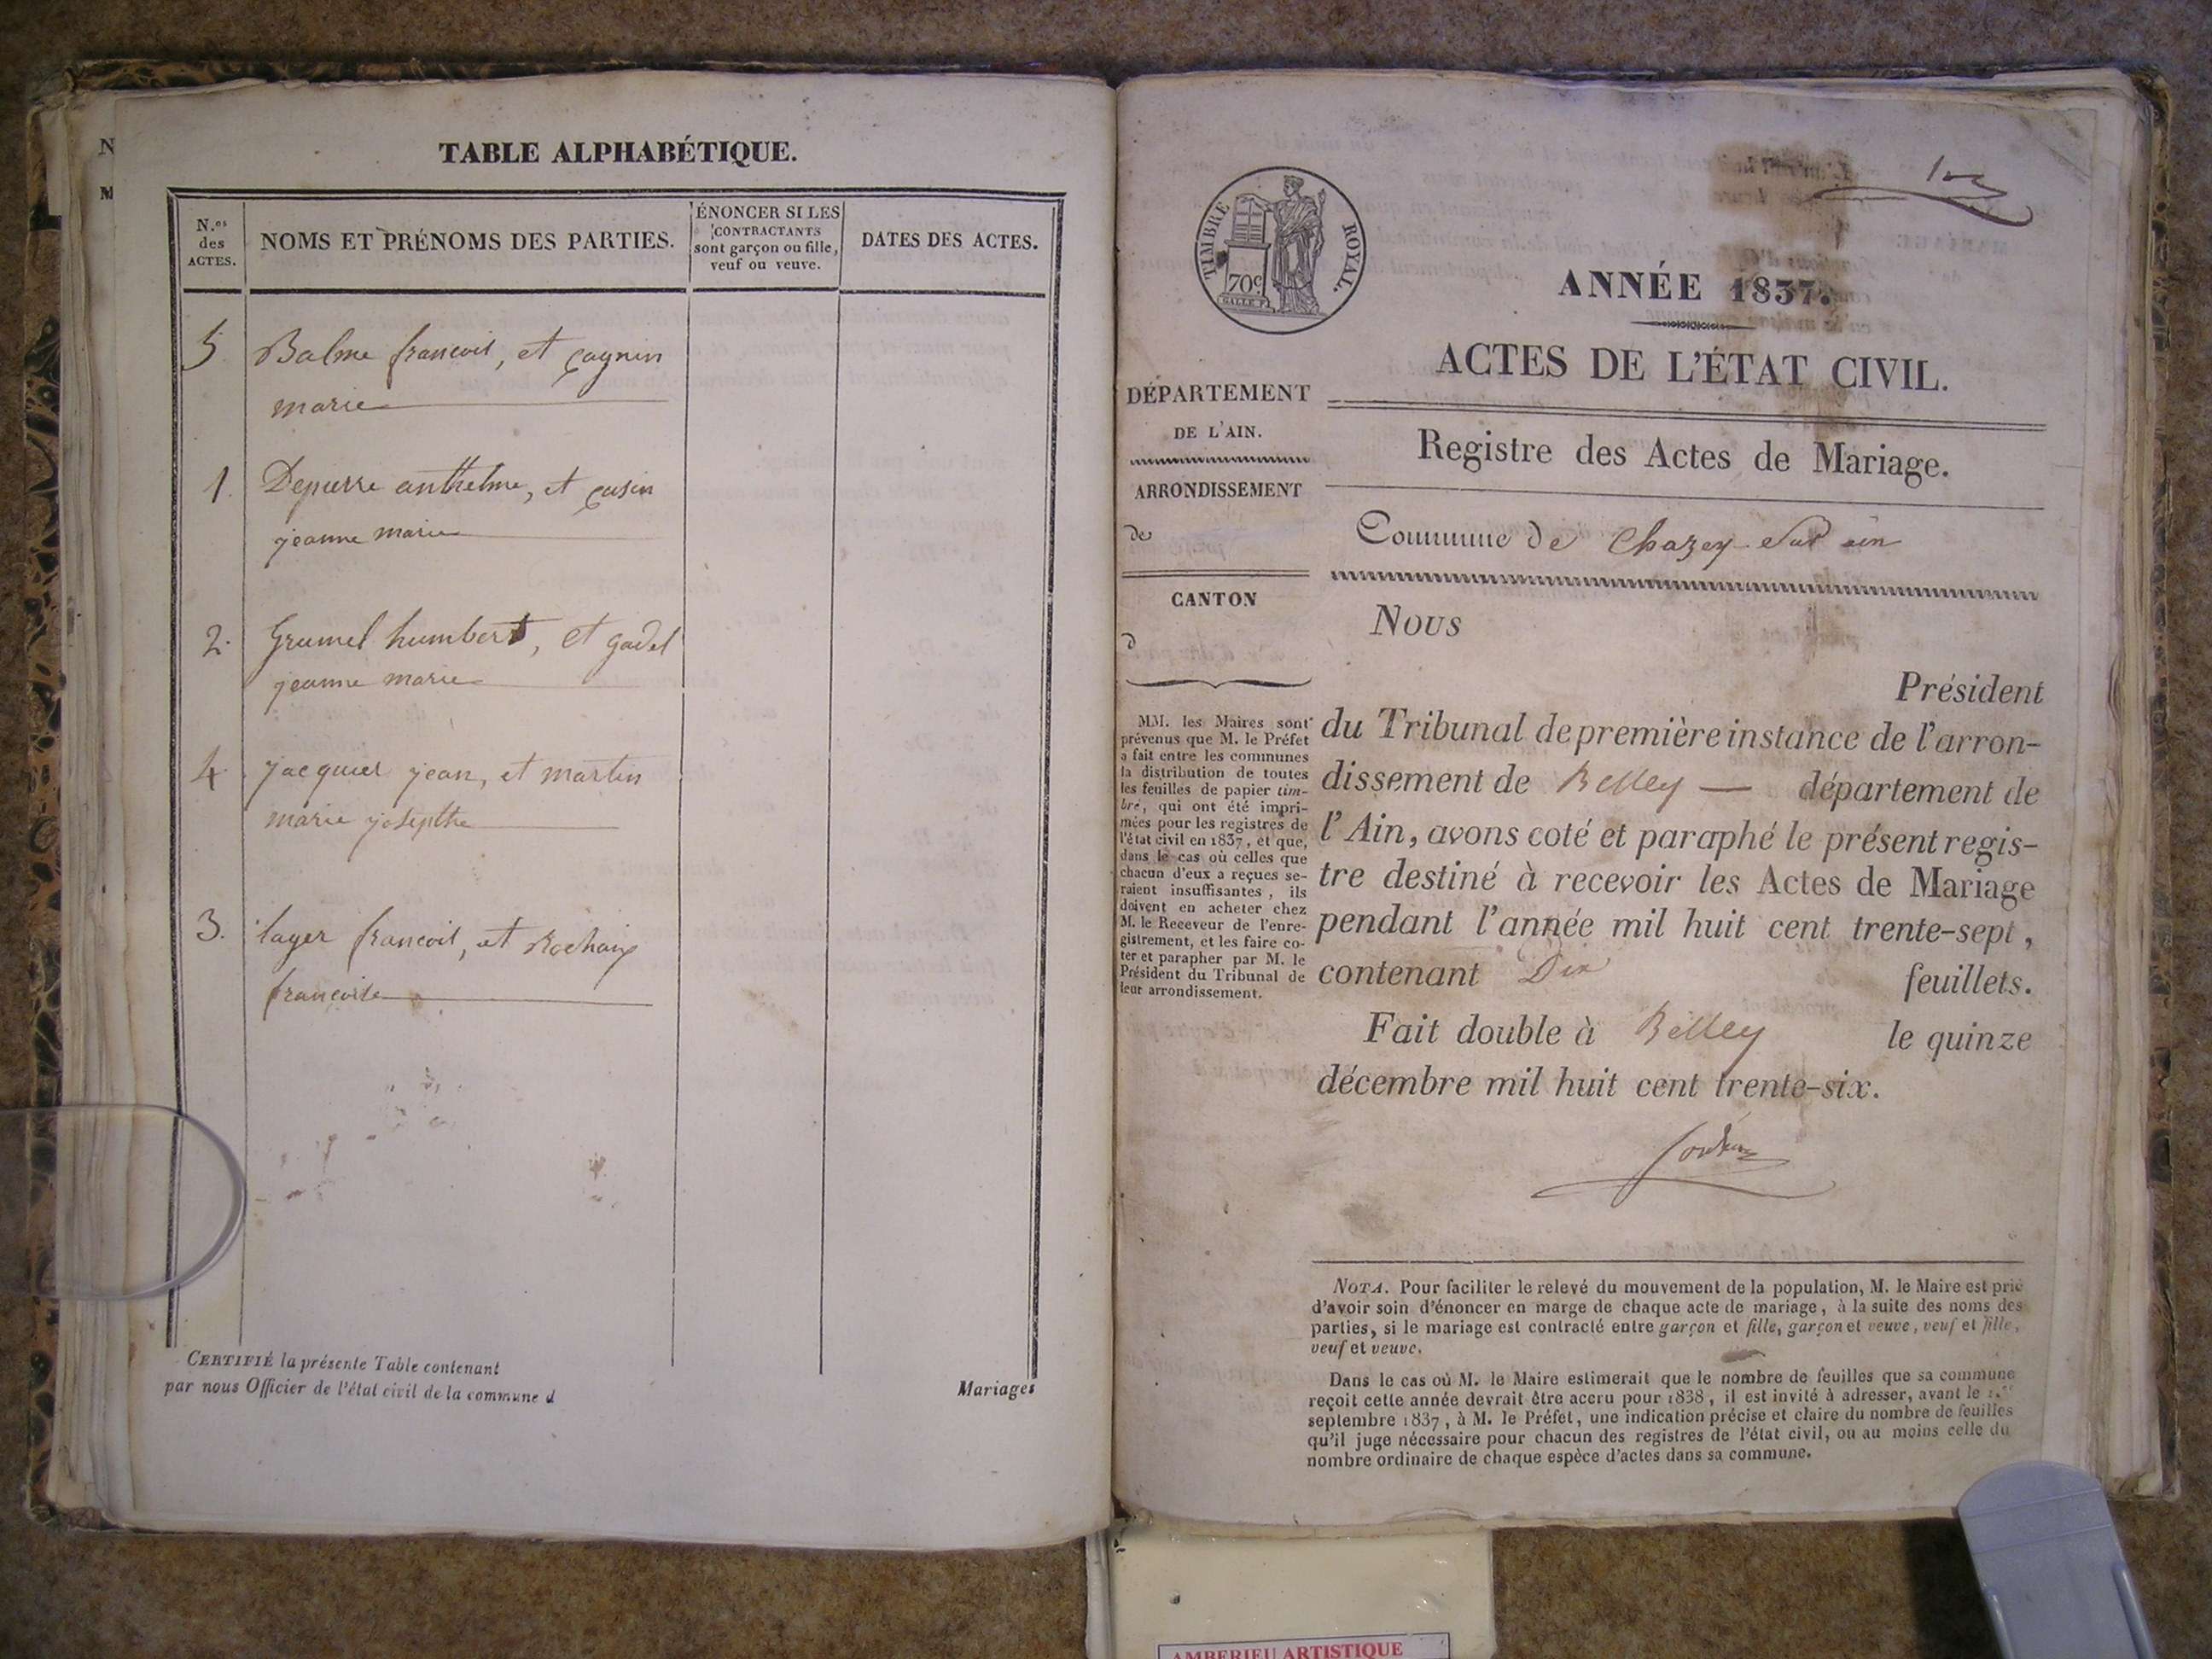 N
M
TABLE ALPHABÉTIQUE.
N.os
des
ACTES.
NOMS ET PRÉNOMS DES PARTIES.
ÉNONCER SI LES
CONTRACTANTS
sont garçon ou fille,
veuf ou veuve.
DATES DES ACTES.
5. Balme francois, et cagnin
marie
1. Depierre anthelme, et cusin
jeanne marie
2. Grumel humbert, et gadel
jeanne marie
4. jacquier jean, et martin
marie josepthe
3. layer francois, et Rochaix
francoise
CERTIFIÉ la présente Table contenant
Mariages
par nous Officier de l'état civil de la commune d
TIMBRE ROYAL.
70c
GALLE F.
ANNÉE 1837.
ACTES DE L'ÉTAT CIVIL.
DÉPARTEMENT
DE L'AIN.
ARRONDISSEMENT
de
CANTON
d
MM. les Maires sont
prévenus que M. le Préfet
a fait entre les communes
la distribution de toutes
les feuilles de papier tim-
bré, qui ont été impri-
mées pour les registres de
l'état civil en 1837, et que,
dans le cas où celles que
chacun d'eux a reçues se-
raient insuffisantes, ils
doivent en acheter chez
M. le Receveur de l'enre-
gistrement, et les faire co-
ter et parapher par M. le
Président du Tribunal de
leur arrondissement.
Registre des Actes de Mariage.
Commune de Chazey Sur ain
Nous
Président
du Tribunal de première instance de l'arron-
dissement de Belley — département de
l'Ain, avons coté et paraphé le présent regis-
tre destiné à recevoir les Actes de Mariage
pendant l'année mil huit cent trente-sept,
contenant Dix feuillets.
Fait double à Belley le quinze
décembre mil huit cent trente-six.
NOTA. Pour faciliter le relevé du mouvement de la population, M. le Maire est prié
d'avoir soin d'énoncer en marge de chaque acte de mariage, à la suite des noms des
parties, si le mariage est contracté entre garçon et fille, garçon et veuve, veuf et fille,
veuf et veuve.
Dans le cas où M. le Maire estimerait que le nombre de feuilles que sa commune
reçoit cette année devrait être accru pour 1838, il est invité à adresser, avant le 1.er
septembre 1837, à M. le Préfet, une indication précise et claire du nombre de feuilles
qu'il juge nécessaire pour chacun des registres de l'état civil, ou au moins celle du
nombre ordinaire de chaque espèce d'actes dans sa commune.
AMBERIEU ARTISTIQUE